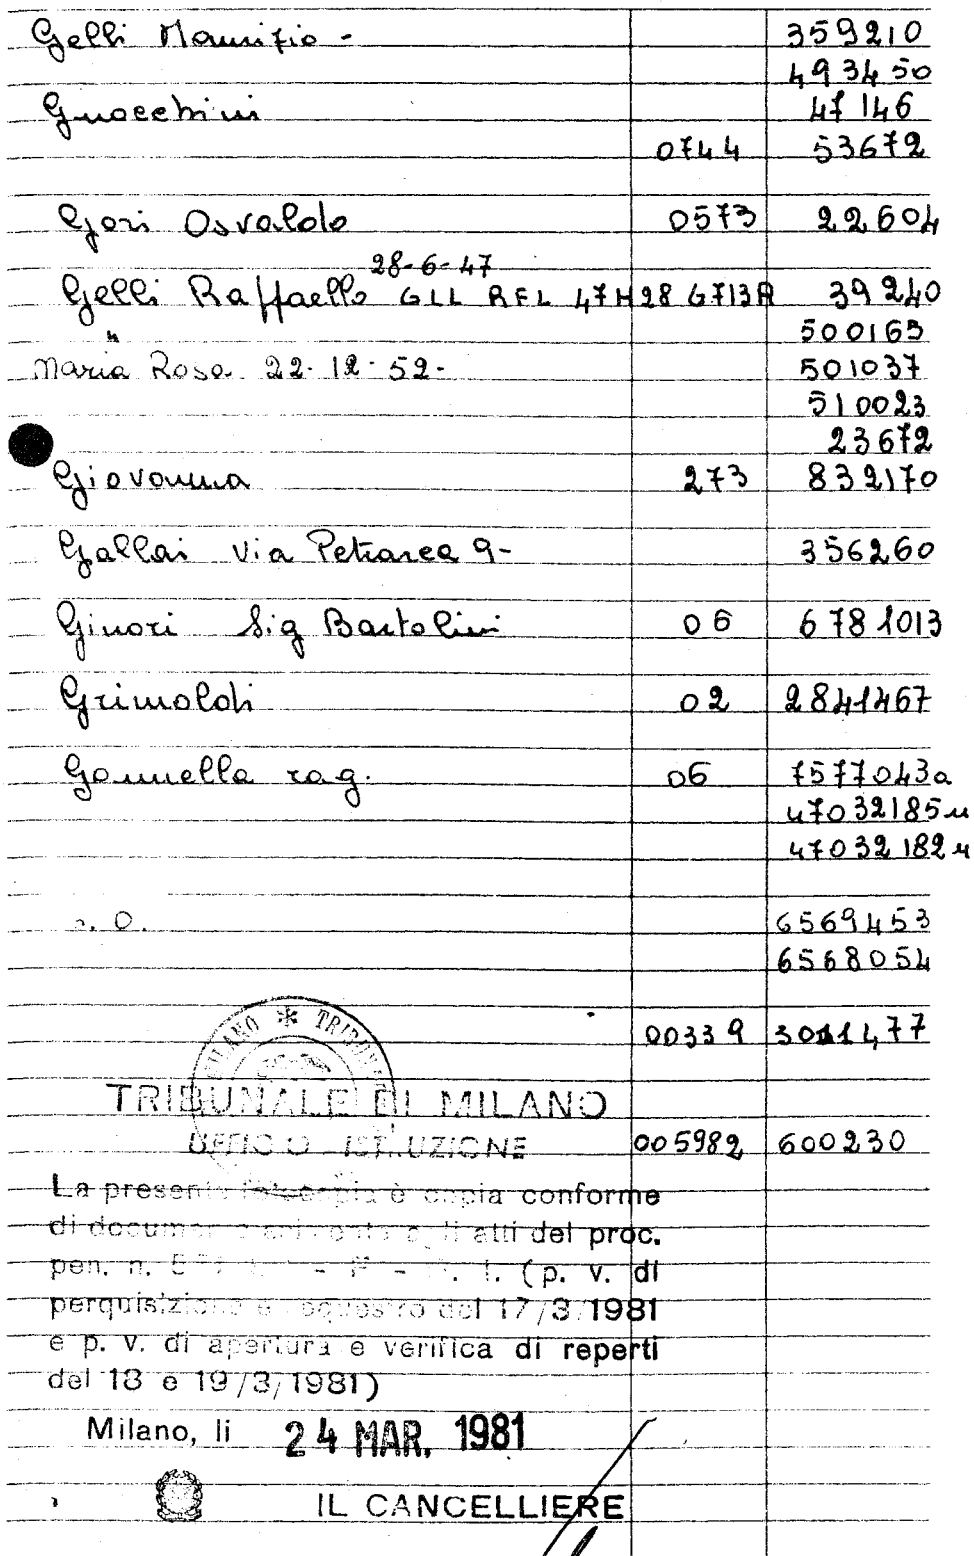 Gelli Maurizio - 359210
493450
Gnocchini 47146
0744 53672
Gori Osvaldo 0573 22604
28-6-47
Gelli Raffaello GLL RFL 47H28 G713A 39240
" 500163
Maria Rosa 22-12-52- 501037
510023
23672
Giovanna 273 832170
Gallai Via Petrarca 9- 356260
Ginori Sig Bartolini 06 6781013
Grimoldi 02 2841467
Gonnella rag. 06 7577043a
47032185u
47032182u
O. 6569453
6568054
MILANO * TRIBUNALE
00339 301477
TRIBUNALE DI MILANO
UFFICIO ISTRUZIONE 005982 600230
La presente fotocopia è copia conforme
di documento agli atti del proc.
pen. n. (p. v. di
perquisizione e sequestro del 17/3/1981
e p. v. di apertura e verifica di reperti
del 18 e 19/3/1981)
Milano, li 24 MAR. 1981
IL CANCELLIERE